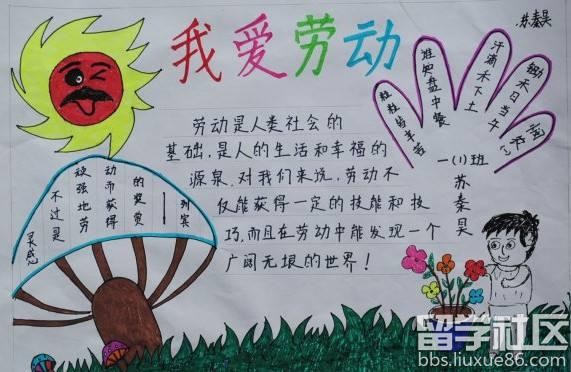 我爱劳动
苏秦昊
锄禾日当午
汗滴禾下土
谁知盘中餐
粒粒皆辛苦
一(1)班
苏秦昊
劳动是人类社会的
基础,是人的生活和幸福的
源泉.对我们来说,劳动不
仅能获得一定的技能和技
巧,而且在劳动中能发现一个
广阔无垠的世界!
灵感
不过
顽强地劳
动而获得
的奖赏
——列宾
留学社区
bbs.liuxue86.com